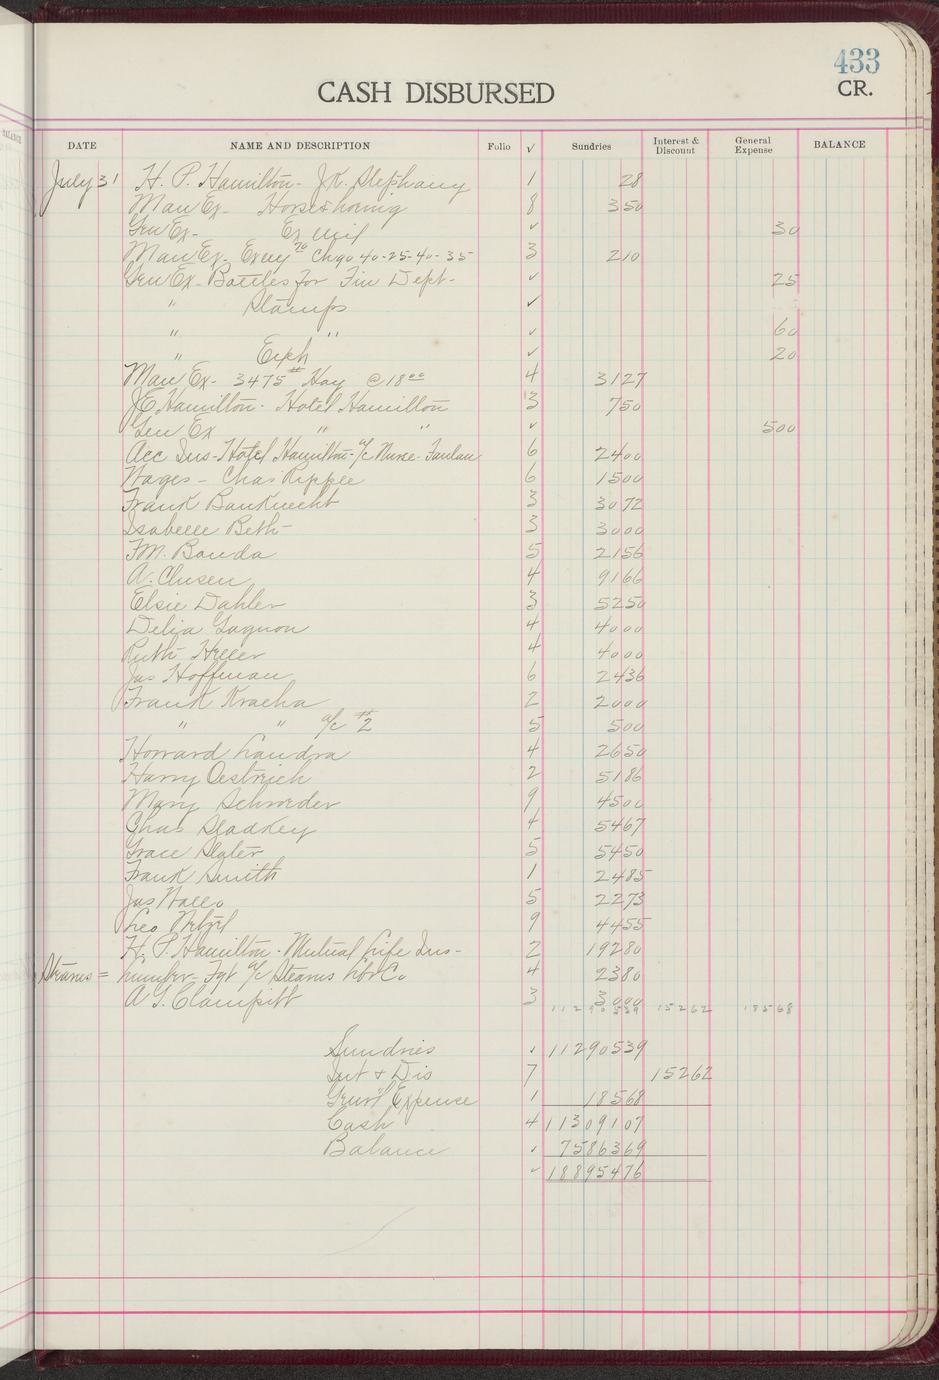 433
CASH DISBURSED
CR.
DATE NAME AND DESCRIPTION Folio ✓ Sundries Interest & Discount General Expense BALANCE
July 31 H. P. Hamilton - J.K. Stephany 1 28
Man Ex - Horseshoeing 8 350
Gen Ex - ✓ 30
Man Ex - Chgo 40-25-40-35 3 210
Gen Ex - Bottles for Fin Dept - ✓ 25
" Stamps ✓
" " ✓ 60
" Exph ✓ 20
Man Ex - 3475# Hay @ 18.00 4 3127
J E Hamilton - Hotel Hamilton 3 750
Gen Ex " " ✓ 500
Acc Ins - Hotel Hamilton - a/c Nurse 6 2400
Wages - Chas Ripple 6 1500
Frank Bauknecht 3 3072
Isabelle Beth 3 3000
F.M. Banda 5 2156
A. Clusen 4 9166
Elsie Dahler 3 5250
Delia Gagnon 4 4000
Ruth Heller 4 4000
Jas Hoffman 6 2436
Frank Kracha 2 2000
" " a/c #2 5 500
Howard Landra 4 2650
Harry Oestreich 2 5186
Mary Schroeder 9 4500
Chas Sladkey 4 5467
Grace Slater 5 5450
Frank Smith 1 2485
Jas Wallo 5 2273
Leo Wetzel 9 4455
H. P. Hamilton - Mutual Life Ins - 2 19280
Stearns = Lumber - Fgt a/c Stearns Lbr Co 4 2380
A. G. Clampitt 3 3000
11290539 15262 18568
Sundries ✓ 11290539
Int & Dis 7 15262
Gen'l Expense 1 18568
Cash 4 11309107
Balance ✓ 7586369
✓ 18895476